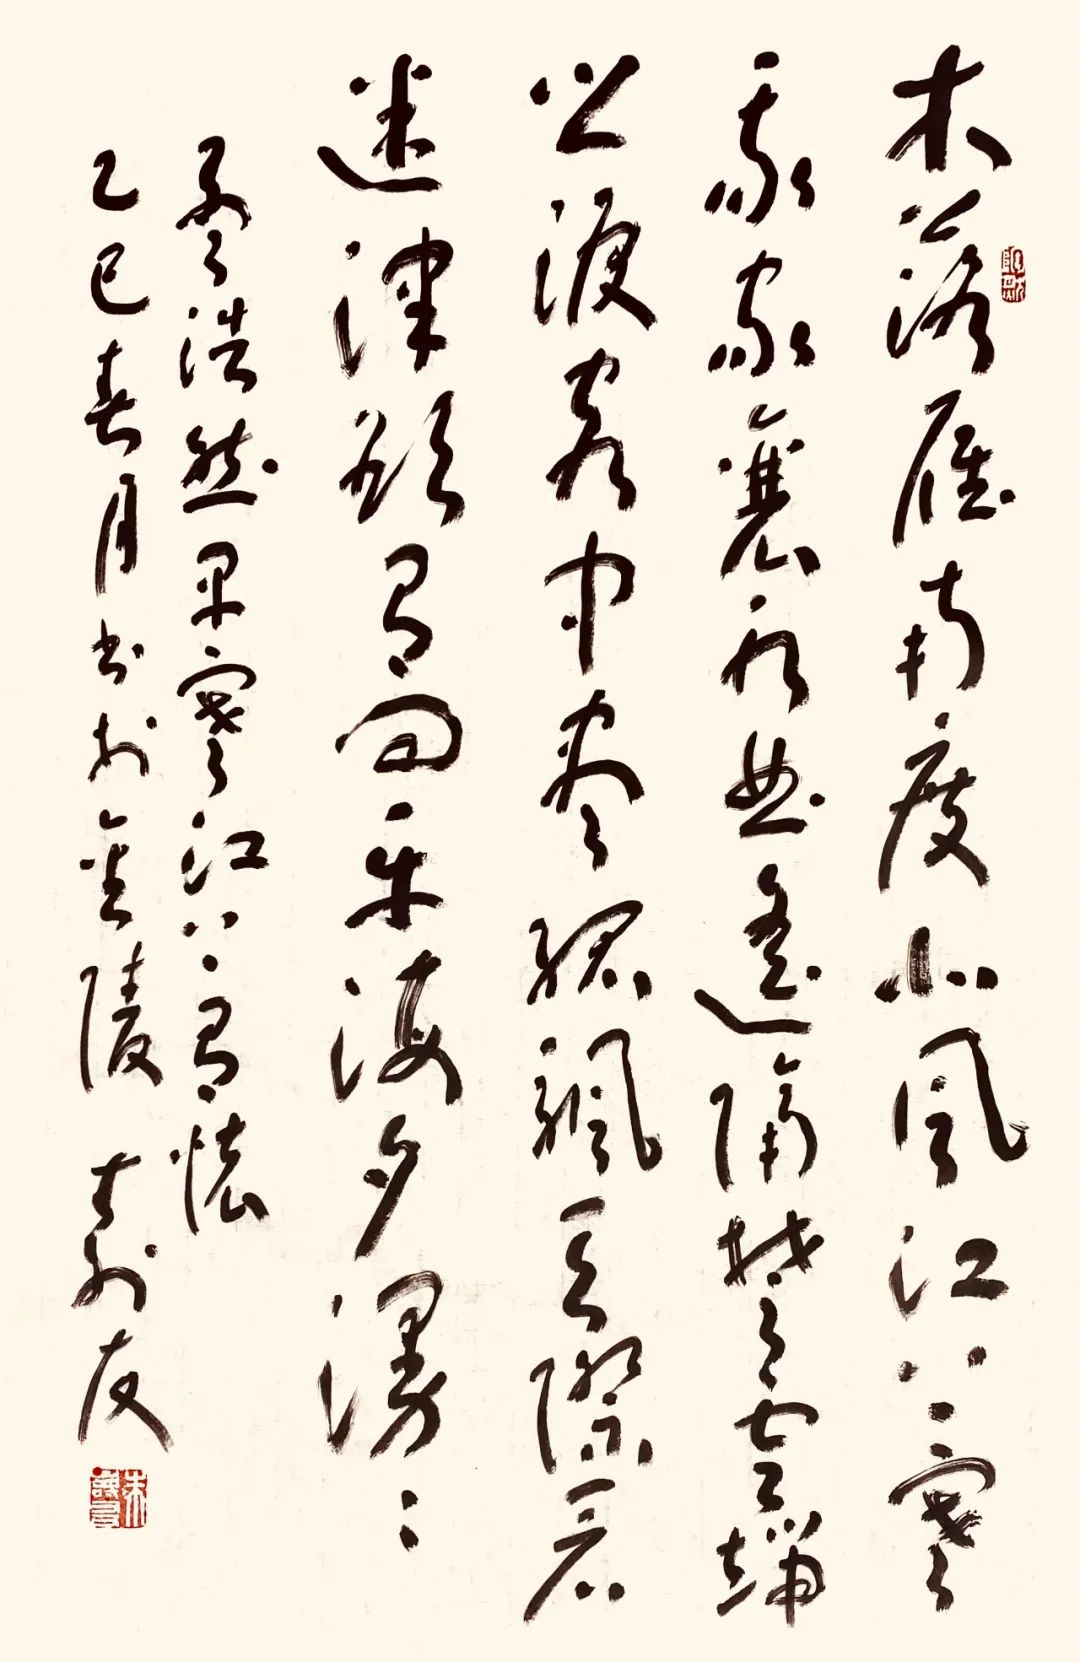 木落雁南度北風江上寒
我家襄水曲遥隔楚雲端
鄉淚客中盡孤颿天際看
迷津欲有問平海夕漫漫
孟浩然早寒江上有懷
乙巳春月书於金陵 友
朱